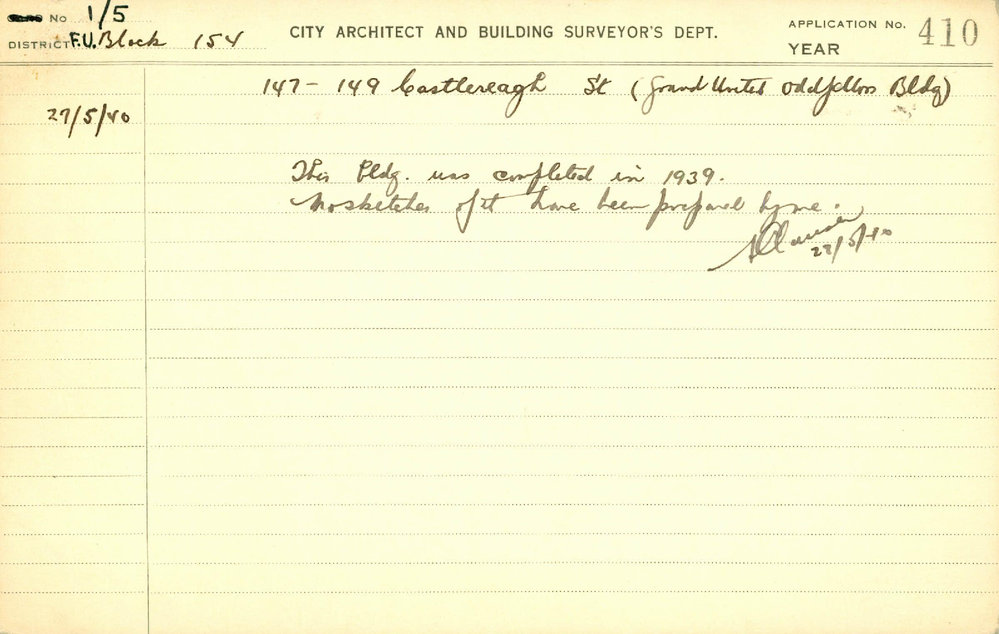 No 1/5
DISTRICT F.U. Block 154
CITY ARCHITECT AND BUILDING SURVEYOR'S DEPT.
APPLICATION No. 410
YEAR
147-149 Castlereagh St (Grand United Oddfellows Bldg)
27/5/40
This Bldg. was completed in 1939.
No sketches of it have been prepared by me.
27/5/40